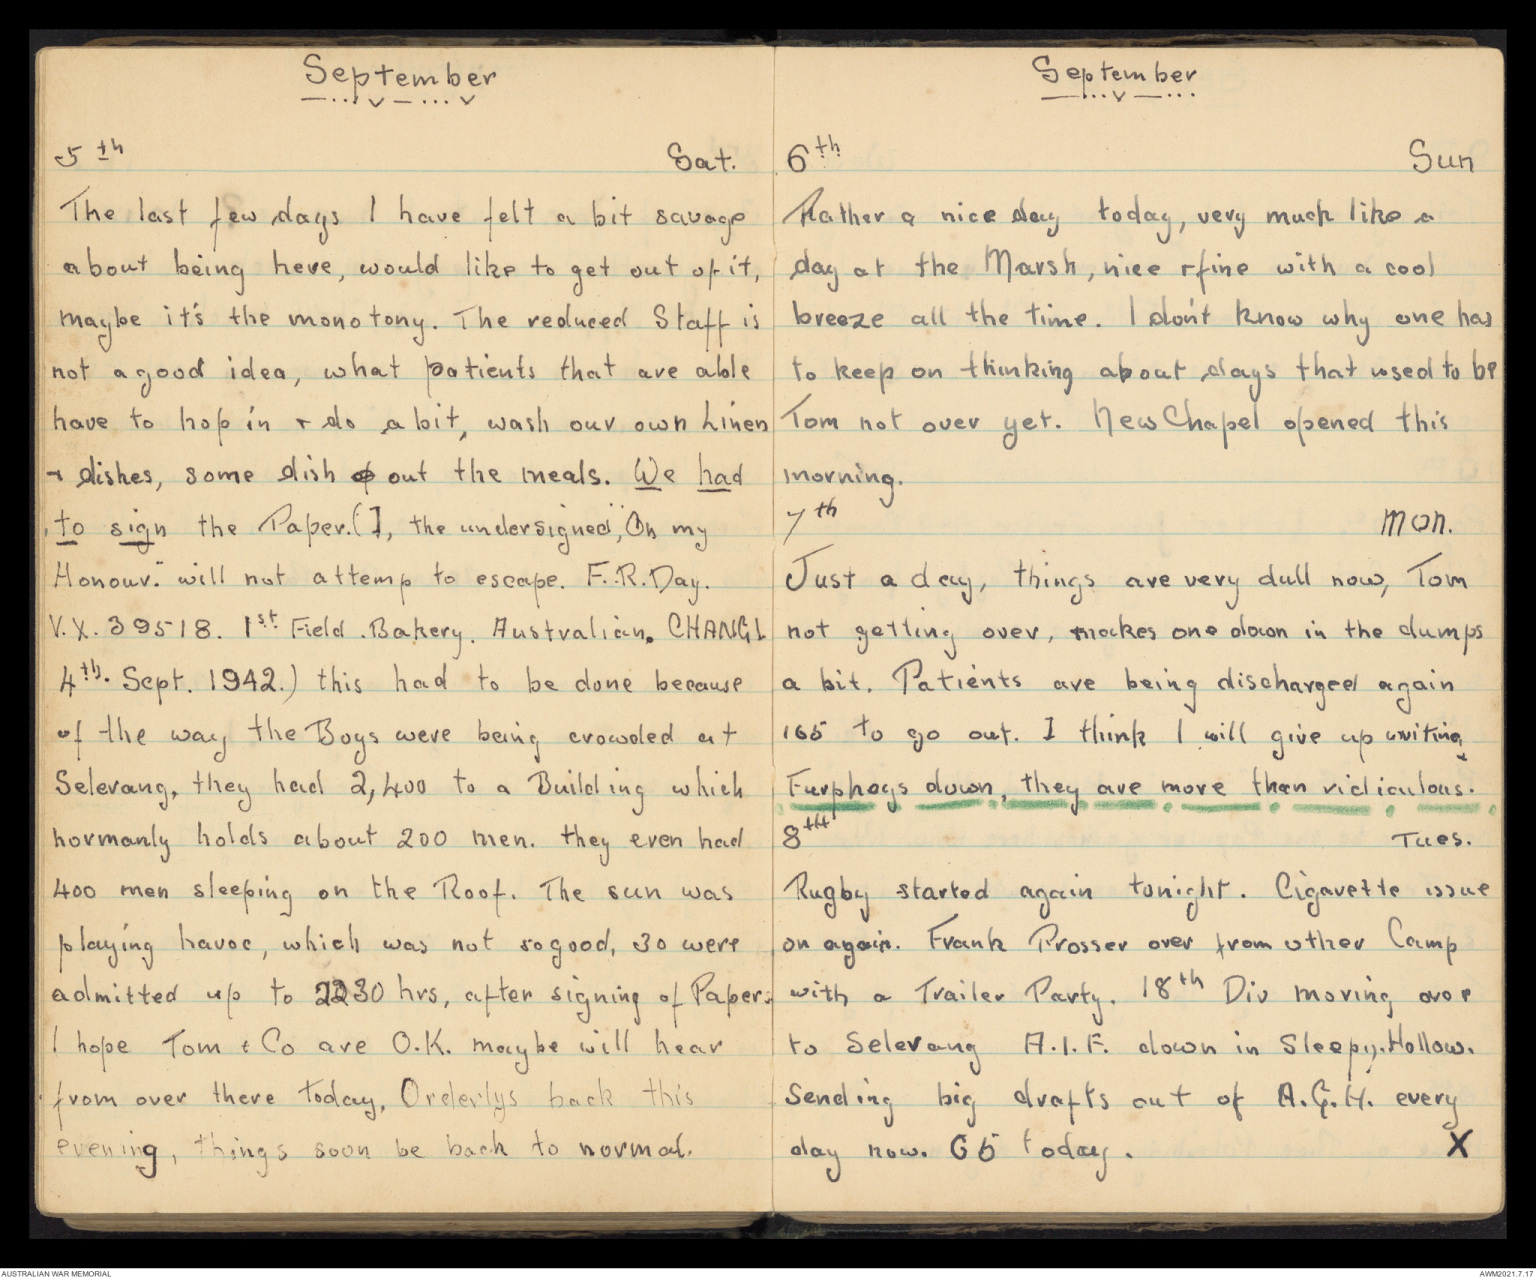 September
5th Sat.
The last few days I have felt a bit savage
about being here, would like to get out of it,
maybe it's the monotony. The reduced Staff is
not a good idea, what patients that are able
have to hop in + do a bit, wash our own Linen
+ dishes, some dish out the meals. We had
to sign the Paper.(I, the undersigned, "On my
Honour." will not attemp to escape. F.R.Day.
V.X.39518. 1st Field.Bakery. Australian. CHANGI
4th. Sept. 1942.) this had to be done because
of the way the Boys were being crowded at
Selerang, they had 2,400 to a Building which
normanly holds about 200 men. they even had
400 men sleeping on the Roof. The sun was
playing havoc, which was not so good, 30 were
admitted up to 2230 hrs, after signing of Paper.
I hope Tom & Co are O.K. maybe will hear
from over there today, Orderlys back this
evening, things soon be back to normal.
September
6th Sun
Rather a nice day today, very much like a
day at the Marsh, nice + fine with a cool
breeze all the time. I don't know why one has
to keep on thinking about days that used to be
Tom not over yet. New Chapel opened this
morning.
7th Mon.
Just a day, things are very dull now, Tom
not getting over, makes one down in the dumps
a bit. Patients are being discharged again
165 to go out. I think I will give up writing
Furpheys down, they are more than ridiculous.
8th Tues.
Rugby started again tonight. Cigarette issue
on again. Frank Prosser over from other Camp
with a Trailer Party. 18th Div moving over
to Selerang A.I.F. down in Sleepy.Hollow.
Sending big drafts out of A.G.H. every
day now. 65 today. X
AUSTRALIAN WAR MEMORIAL
AWM2021.7.17